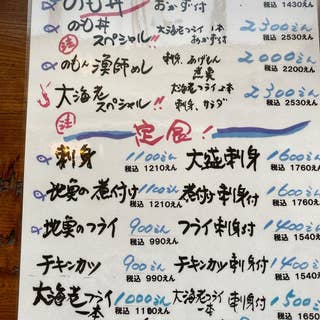 のも丼 おかず付 税込 1430えん
のも丼スペシャル!! 大海老フライ1本 おかず付 2300えん 税込 2530えん
のもん漁師めし 刺身、あげもん 煮魚 2000えん 税込 2200えん
大海老スペシャル!! 大海老フライ2本 刺身、サラダ 2300えん 税込 2530えん
定食!
刺身 1100えん 税込 1210えん 大盛刺身 1600えん 税込 1760えん
地魚の煮付け 1100えん 税込 1210えん 煮付け刺身付 1600えん 税込 1760
地魚のフライ 900えん 税込 990えん フライ刺身付 1400えん 税込 1540
チキンカツ 900えん 税込 990えん チキンカツ刺身付 1400 税込 1540
大海老フライ一本 1000えん 税込 1100えん 大海老フライ一本 刺身付 1500 税込 1650